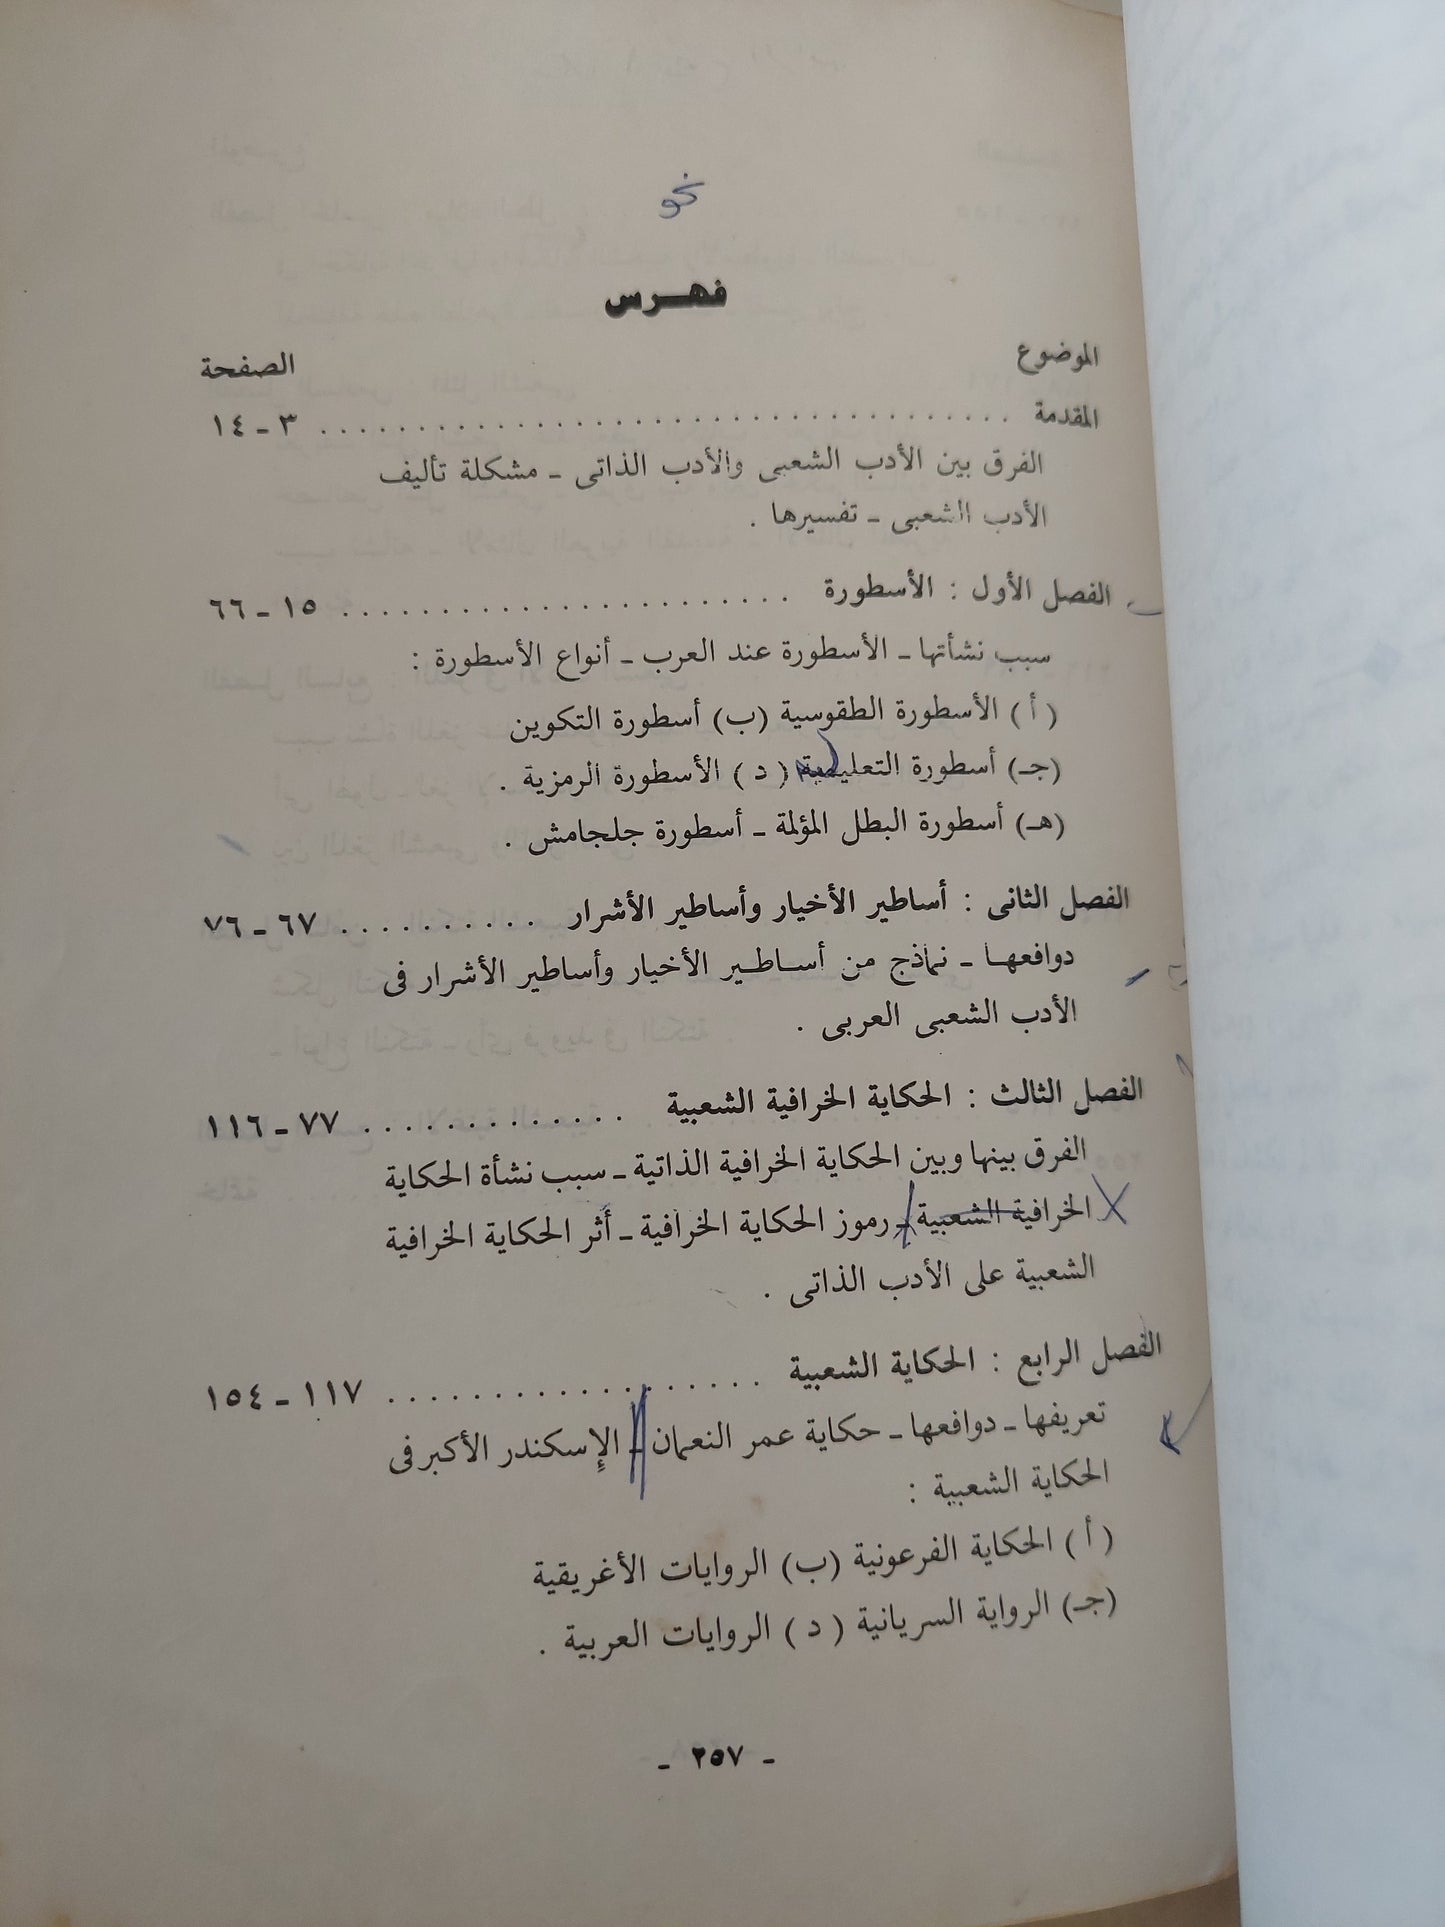 نحو
فهرس
الموضوع الصفحة
المقدمة . . . . . . . . . . . . . . . . . . . . . . . . . . . . . . . . . . . ٣ - ١٤
الفرق بين الأدب الشعبى والأدب الذاتى - مشكلة تأليف
الأدب الشعبى - تفسيرها .
الفصل الأول : الأسطورة . . . . . . . . . . . . . . . . . . . . . . . ١٥ - ٦٦
سبب نشأتها - الأسطورة عند العرب - أنواع الأسطورة :
( أ ) الأسطورة الطقوسية (ب) أسطورة التكوين
(جـ) أسطورة التعليمية ( د ) الأسطورة الرمزية .
(هـ) أسطورة البطل المؤلمة - أسطورة جلجامش .
الفصل الثانى : أساطير الأخيار وأساطير الأشرار . . . . . . . . . . ٦٧ - ٧٦
دوافعها - نماذج من أساطير الأخيار وأساطير الأشرار فى
الأدب الشعبى العربى .
الفصل الثالث : الحكاية الخرافية الشعبية . . . . . . . . . . . . . ٧٧ - ١١٦
الفرق بينها وبين الحكاية الخرافية الذاتية - سبب نشأة الحكاية
الخرافية الشعبية - رموز الحكاية الخرافية - أثر الحكاية الخرافية
الشعبية على الأدب الذاتى .
الفصل الرابع : الحكاية الشعبية . . . . . . . . . . . . . . . . . . . ١١٧ - ١٥٤
تعريفها - دوافعها - حكاية عمر النعمان - الإسكندر الأكبر فى
الحكاية الشعبية :
( أ ) الحكاية الفرعونية (ب) الروايات الأغريقية
(جـ) الرواية السريانية ( د ) الروايات العربية .
- ٢٥٧ -